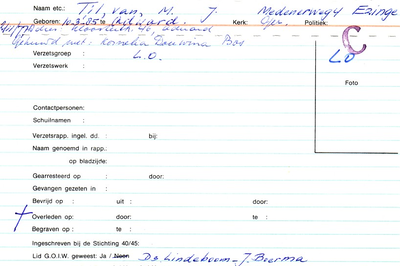 Naam etc.: Til, van, M. J. Medenerweg 4 Ezinge
Geboren: 10.3.85 te Aduard. Kerk: Ger. Politiek:
Gehuwd met: Kornelia Bos
C
Verzetsgroep : L.O. LO
Verzetswerk :
Foto
Contactpersonen:
Schuilnamen :
Verzetsrapp. ingel. dd. : bij:
Naam genoemd in rapp.:
op bladzijde:
Gearresteerd op : door:
Gevangen gezeten in :
Bevrijd op : uit : door:
Overleden op: door: te :
Begraven op : te :
Ingeschreven bij de Stichting 40/45:
Lid G.O.I.W. geweest: Ja / Neen Ds Lindeboom - J. Bierma